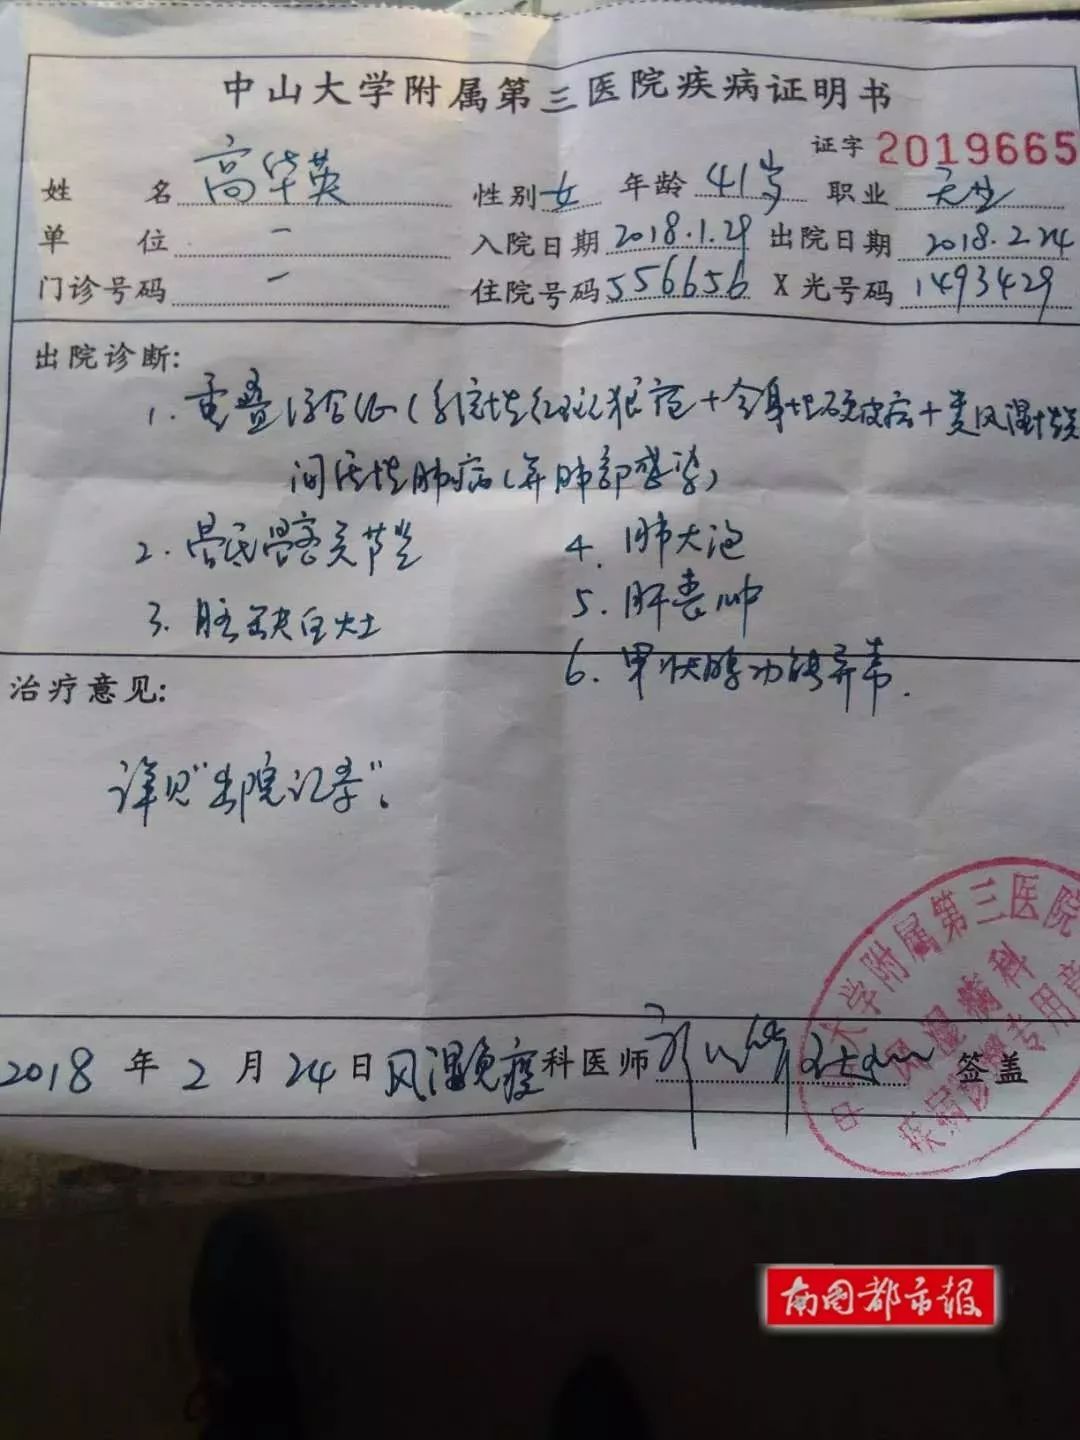 中山大学附属第三医院疾病证明书
证字 2019665
姓名 高华英 性别 女 年龄 41岁 职业 无业
单位 一 入院日期 2018.1.29 出院日期 2018.2.24
门诊号码 一 住院号码 556656 X光号码 1493429
出院诊断:
1. 重叠综合征(系统性红斑狼疮+全身性硬皮病+类风湿性
间质性肺病(并肺部感染)
2. 骶髂关节炎
3. 脑缺血灶
4. 肺大泡
5. 肝囊肿
6. 甲状腺功能异常.
治疗意见:
详见"出院记录"。
2018年2月24日风湿免疫科医师 签盖
中 大学附属第三医院
风湿病科
疾病诊断专用章
南国都市报